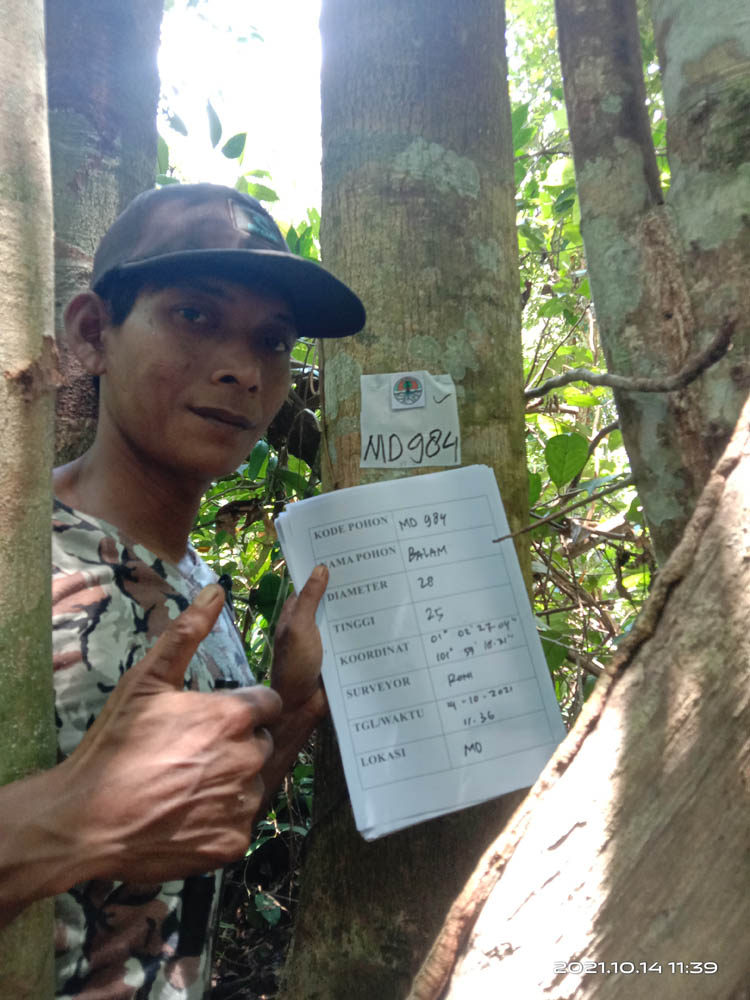 MD 984
KODE POHON MD 984
NAMA POHON BALAM
DIAMETER 28
TINGGI 25
KOORDINAT 01° 02' 27.04"
101° 59' 18.21"
SURVEYOR Romi
TGL/WAKTU 14-10-2021
11.36
LOKASI MD
2021.10.14 11:39